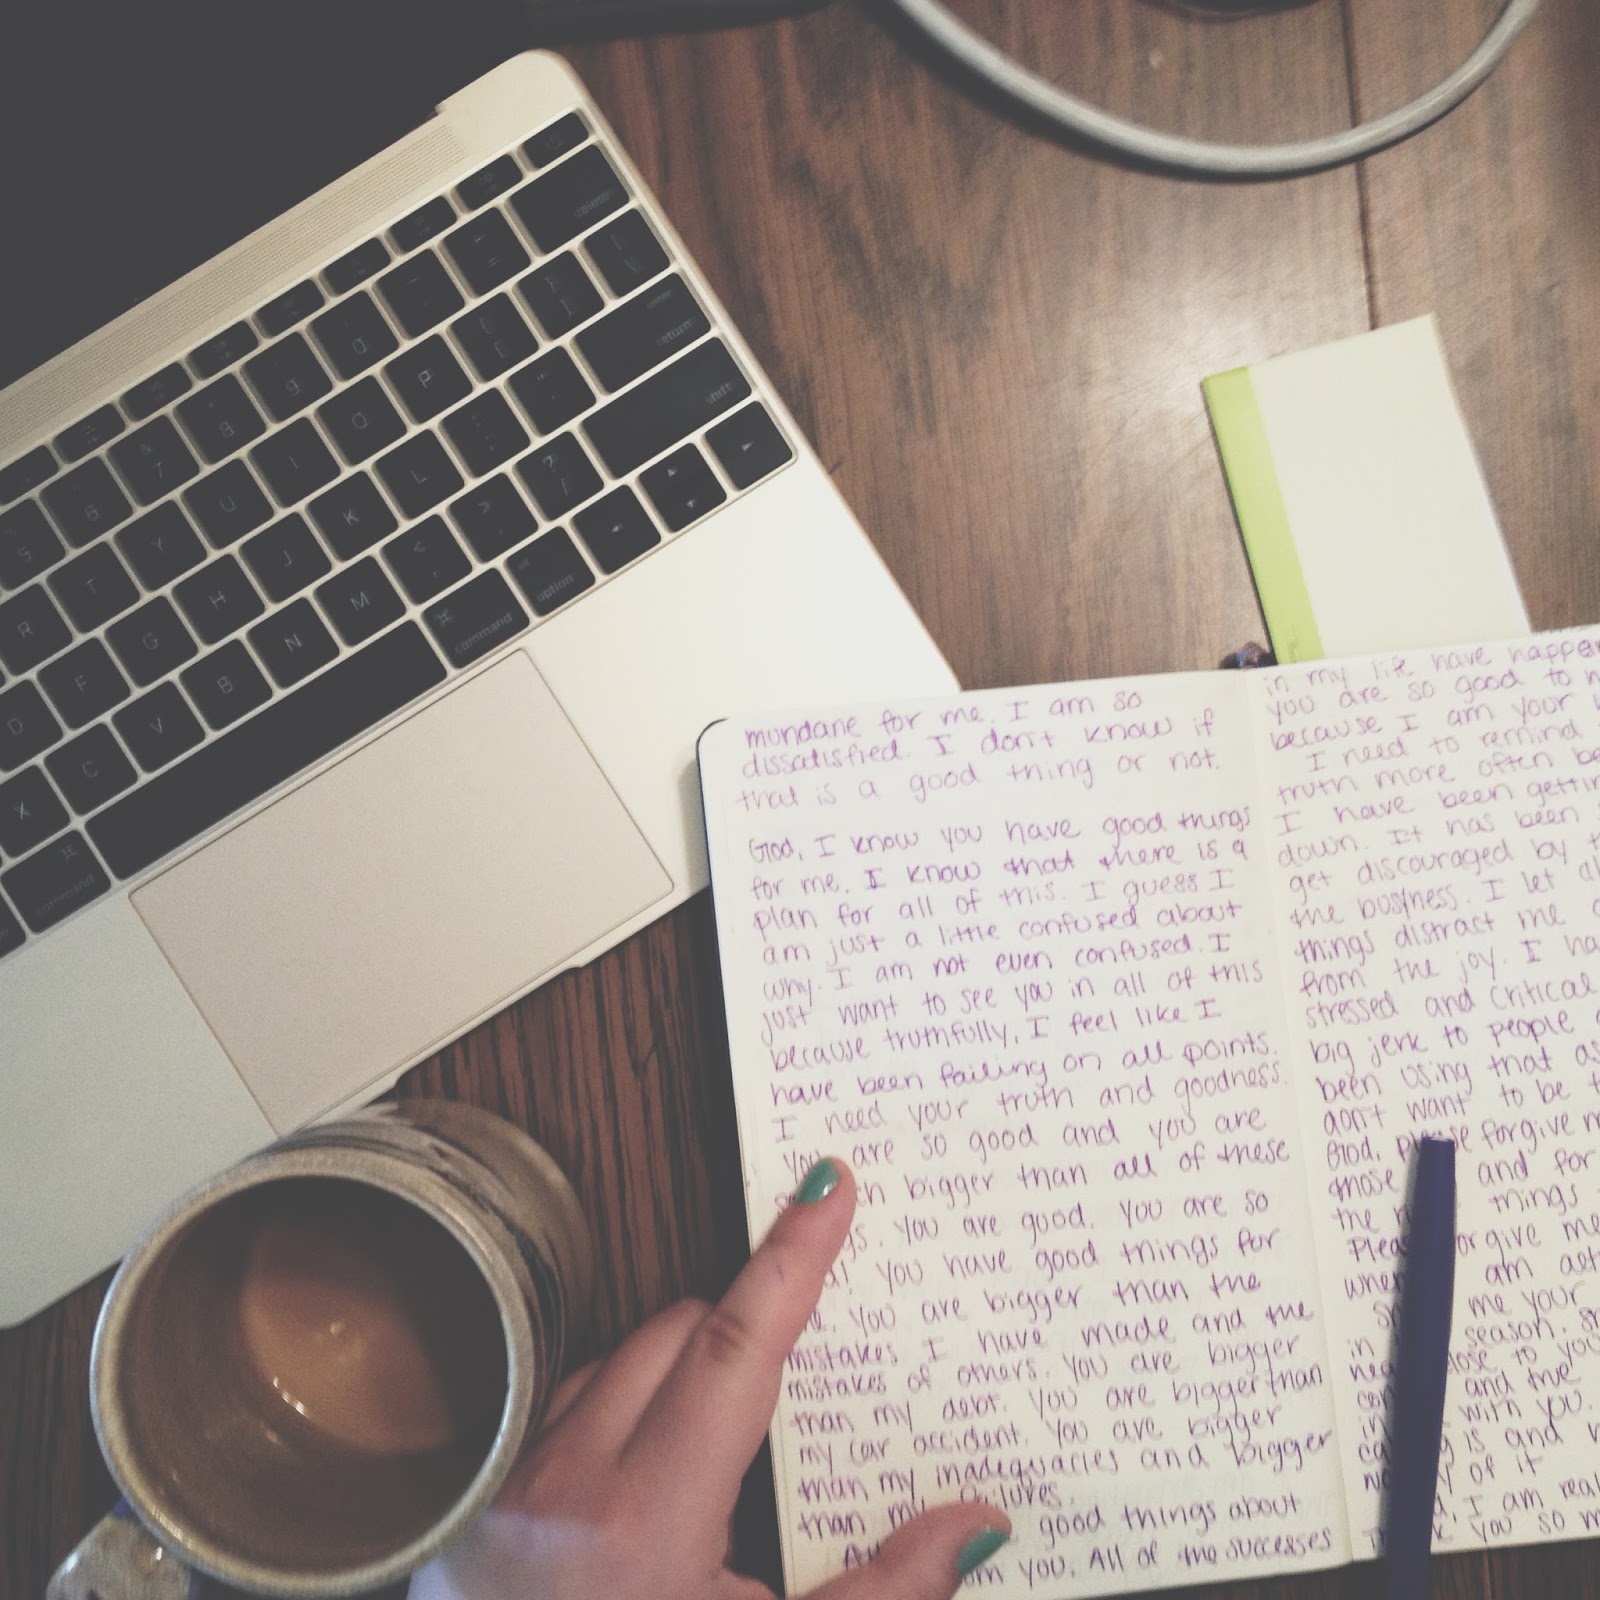 delete
enter
return
shift
+
=
{
[
}
]
|
\
P
O
I
U
Y
T
R
L
K
J
H
G
F
D
?
/
>
.
<
,
M
N
B
V
C
X
&
7
6
5
8
9
0
alt
option
⌘
command
⌘
command
mundane for me. I am so
dissatisfied. I don't know if
that is a good thing or not.
God, I know you have good things
for me. I know that there is a
plan for all of this. I guess I
am just a little confused about
why. I am not even confused. I
just want to see you in all of this
because truthfully, I feel like I
have been failing on all points.
I need your truth and goodness.
You are so good and you are
bigger than all of these
You are good. You are so
! You have good things for
You are bigger than the
mistakes I have made and the
mistakes of others. You are bigger
than my debt. You are bigger than
my car accident. You are bigger
than my inadequacies and bigger
than my failures.
good things about
from you. All of the successes
in my life have happen
you are so good to
because I am your
I need to remind
truth more often be
I have been gettin
down. It has been
get discouraged by t
the busyness. I let al
things distract me
from the joy. I ha
stressed and critical
big jerk to people
been using that as
don't want to be
God, please forgive m
those and for
the things
Please forgive me
when am act
me your
in season. S
close to you
and the
in with you.
is and
of it
I am real
you so m